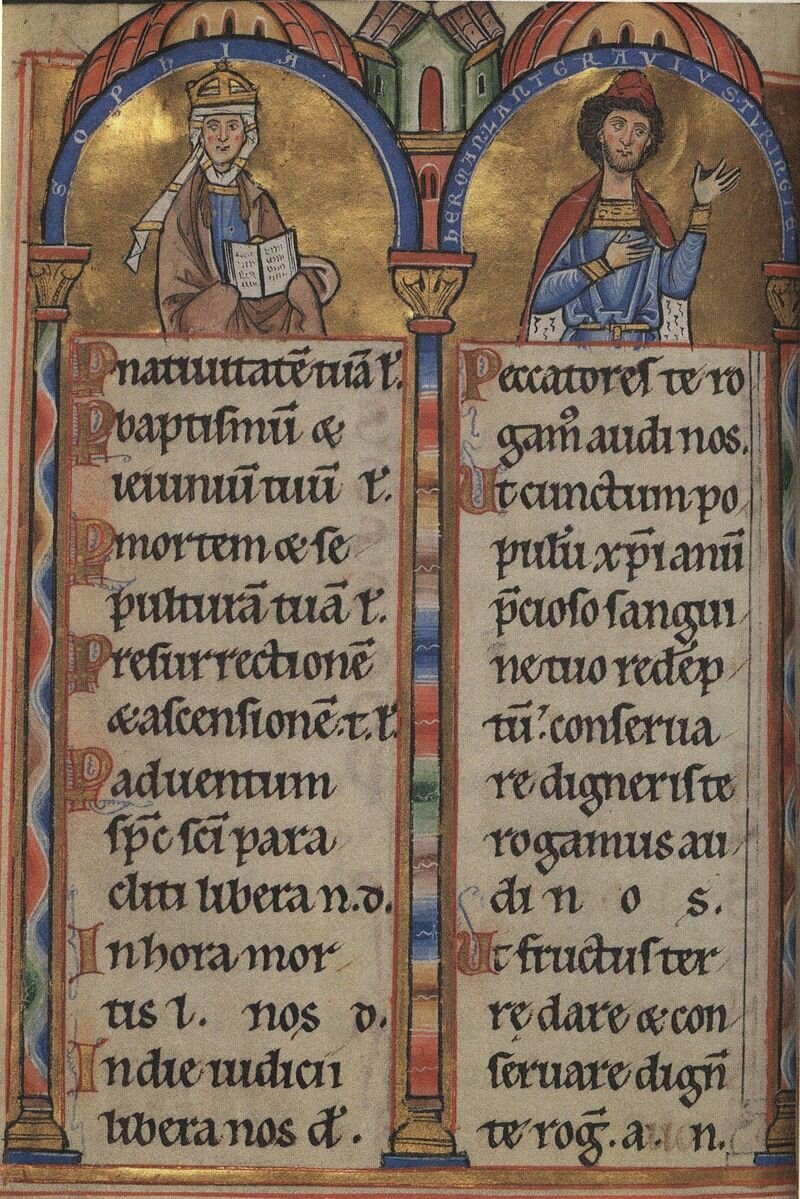 SOPHIA
HERMAN LANTGRAVIVS TVRINGIE
P natiuitatē tuā l'.
P baptismū &
ieiuniū tuū l'.
P mortem & se
pulturā tuā l'.
P resurrectionē
& ascensionē. t. l'.
P aduentum
sp̄c sc̄i para
cliti libera n. d.
In hora mor
tis l. nos d.
In die iudicii
libera nos d'.
Peccatores te ro
gam' audi nos.
Ut cunctum po
pulū xp̄ianū
p̄cioso sangui
ne tuo redēp
tū. conserua
re digneris te
rogamus au
di nos.
Ut fructus ter
rę dare & con
seruare dign̄
te roḡ. a. n.